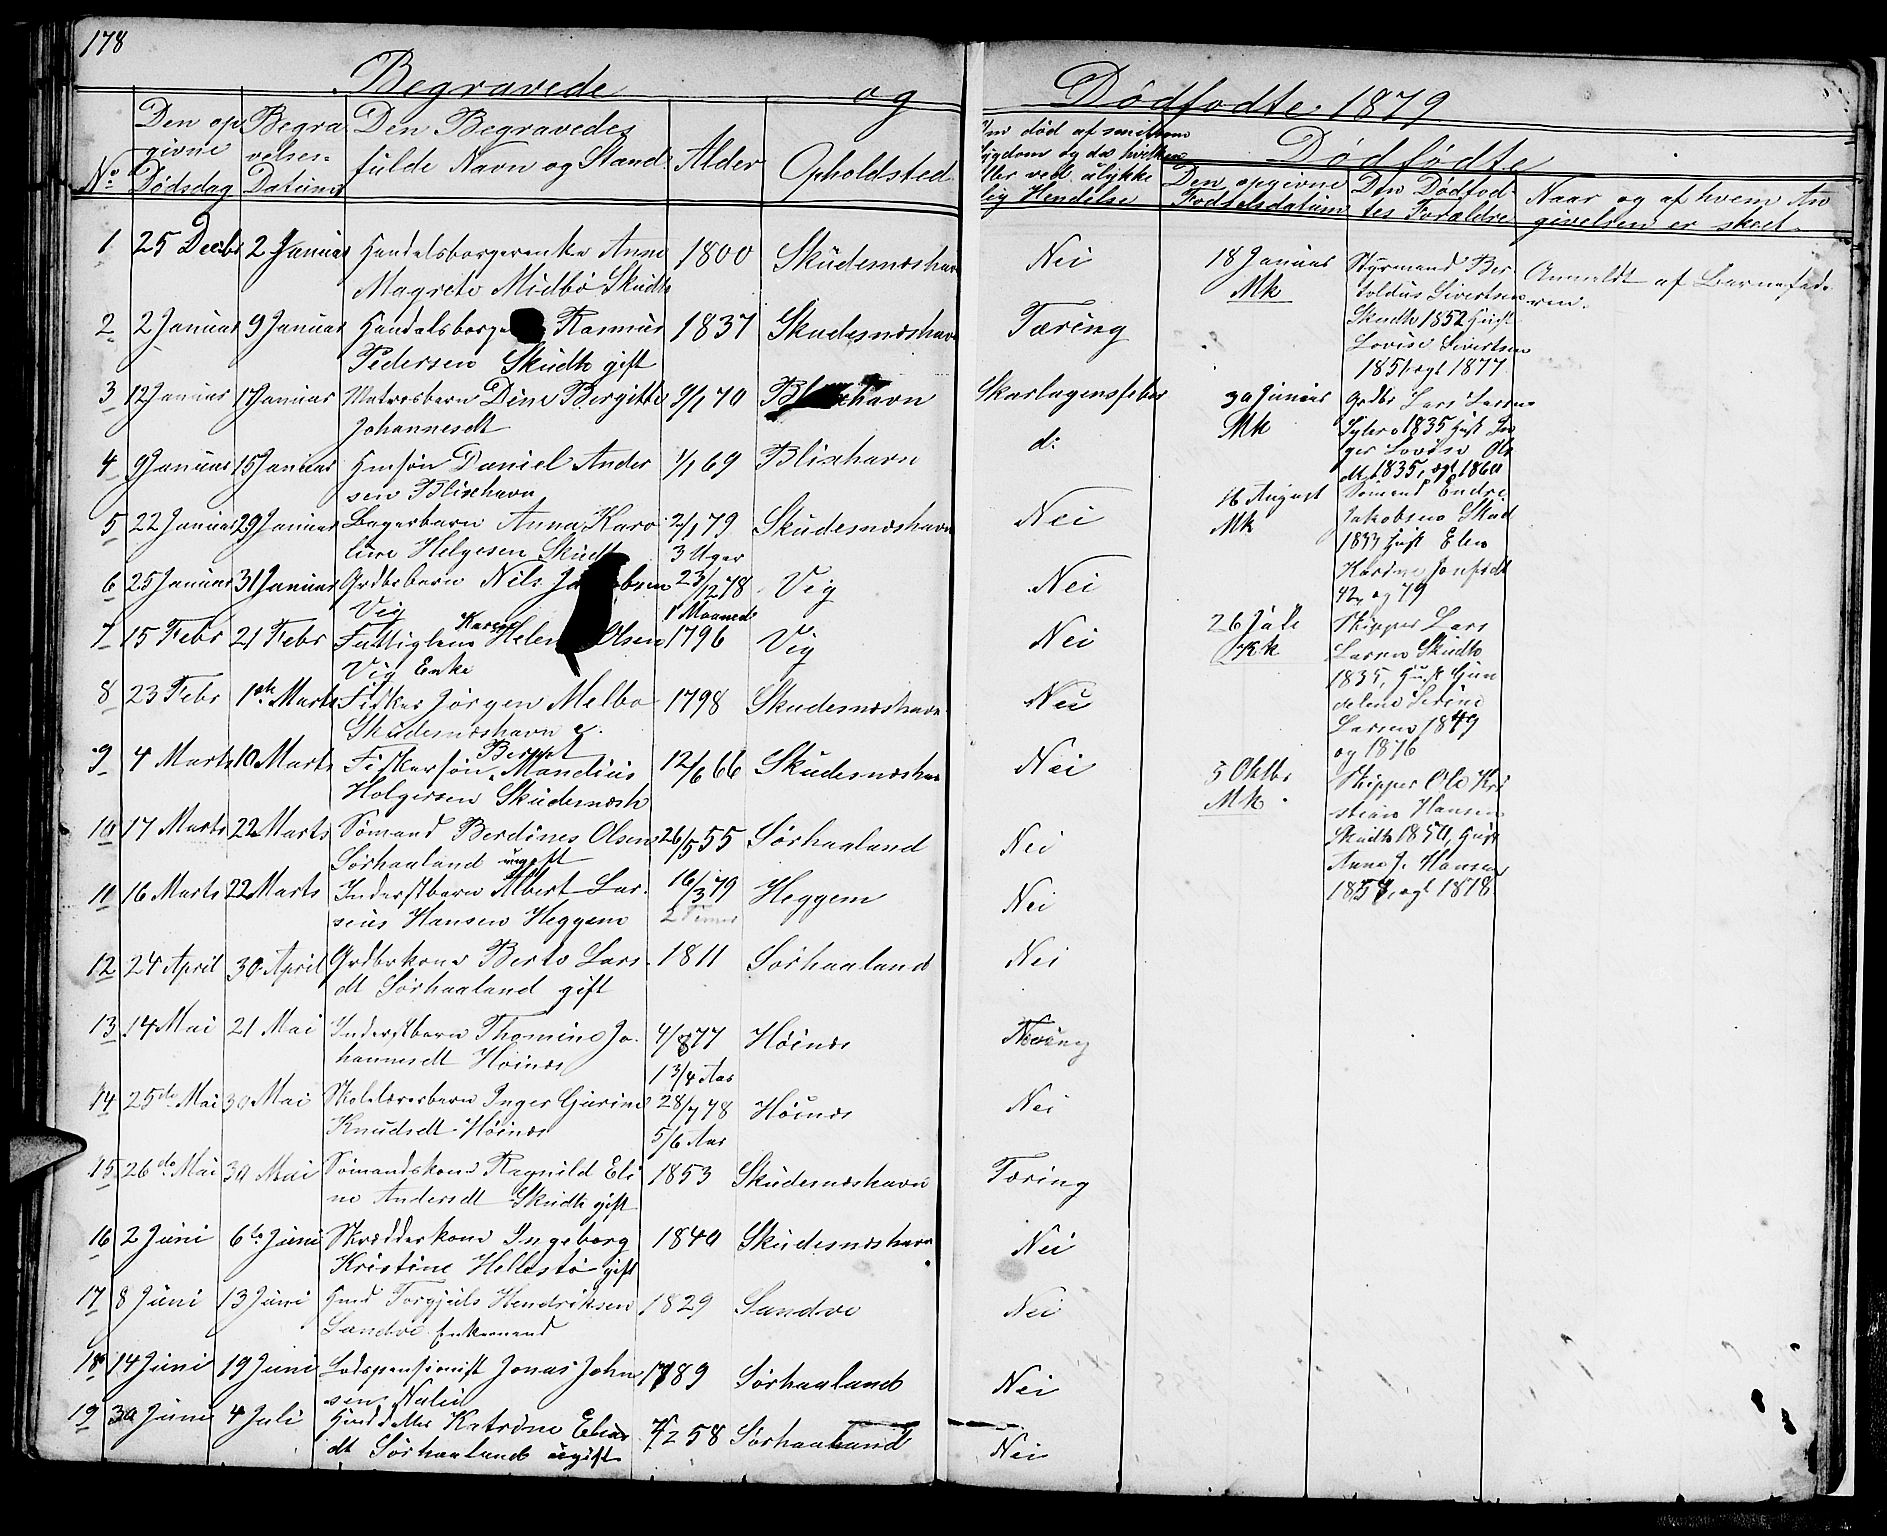 178
Begravede og Dødfødte 1879
No
Den op
givne
Dødsdag
Begra
velses-
Datum
Den Begravedes
fulde Navn og Stand
Alder
Opholdsted
Om død af smitsom
Sygdom og da hvilken
eller ved ulykke
lig Hendelse
Dødfødte
Den opgivne
Fødselsdatum
Den Dødfød
tes Foraldre
Naar og af hvem An
givelsen er skeet.
1 25 Decbr 2 Januar Handelsborgerenke Anne 1800 Skudesneshavn Nei
Magrete Midbø Skudh
2 2 Januar 9 Januar Rasmus 1837 Skudesneshavn Tæring
Pedersen Skudh gift
3 12 Januar 17 Januar Matrosbarn Dine Birgitte 9/1 70 Skarlagensfeber
Johannesdt
4 9 Januar 15 Januar Hmsøn Daniel Ander 1/1 69 Blixhavn d:
sen Blixhavn
5 22 Januar 29 Januar Bagerbarn Anna Karo 2/1 79 Skudesneshavn Nei
line Helgesen Skudh 3 Uger
6 25 Januar 31 Januar Grdbrbarn Nils 23/12 78 Vig Nei
Vig 1 Maaned
7 15 Febr 21 Febr Fattiglem Karine Helene Olsen 1796 Vig Nei
Vig Enke
8 23 Febr 1ste Marts Fisker Jørgen Melbo 1798 Skudesneshavn Nei
Skudesneshavn
9 4 Marts 10 Marts Fiskersøn Mandius 12/6 66 Skudesneshavn Nei
Holgersen Skudesnesh
10 17 Marts 22 Marts Sømand Berdines Olsen 26/5 55 Sørhaaland Nei
Sørhaaland ugift
11 16 Marts 22 Marts Inderstbarn Albert Lar- 16/3 79 Heggem Nei
sius Hansen Heggem 2 Timer
12 24 April 30 April Grdbrkone Berte Lars 1811 Sørhaaland Nei
dt Sørhaaland gift
13 14 Mai 21 Mai Inderstbarn Thomine Jo- 4/8 77 Høines
hannesdt Høines 1 3/4 Aar
14 25de Mai 30 Mai Skolelærerbarn Inger Gurine 28/7 78 Høines Nei
Knudsdt Høines 5/6 Aar
15 26de Mai 30 Mai Sømandskone Ragnild Eli 1853 Skudesneshavn Tæring
ne Andersdt Skudh gift
16 2 Juni 6te Juni Skrædderkone Ingeborg 1840 Skudesneshavn Nei
Kristine Hellestø gift
17 8 Juni 13 Juni Hmd Torgjuls Hendriksen 1829 Sandve Nei
Sandve Enkemand
18 14 Juni 19 Juni Lodspensionist Jonas John 1789 Sørhaaland Nei
sen
19 30 Juni 4 Juli Katrine Elias 58 Sørhaaland Nei
dt Sørhaaland ugift
18 Januar
Mk
Styrmand Ber
toldus Sivertsen
Skudh 1852 Hust
Lovise Sivertsen
1851 ægt 1877
Anmeldt af Barnefade
ren.
30 Junius
Mk
Grdbr Lars Larsen
1835 Hust In
ger Lovise Ols
dt 1835, ægt 1860
16 August
Mk
Sømand Endre
Jakobsen Skud
1833 Hust Elen
42, og 79
26 Juli
Skipper Lars
Larsen Skudh
1835, Hust Gun
delene Serine
Larsen 1849
og 1876
5 Oktbr
Mk
Skipper Ole Kri
stian Hansen
Skudh 1850, Hust
Anne J. Hansen
ægt 1878